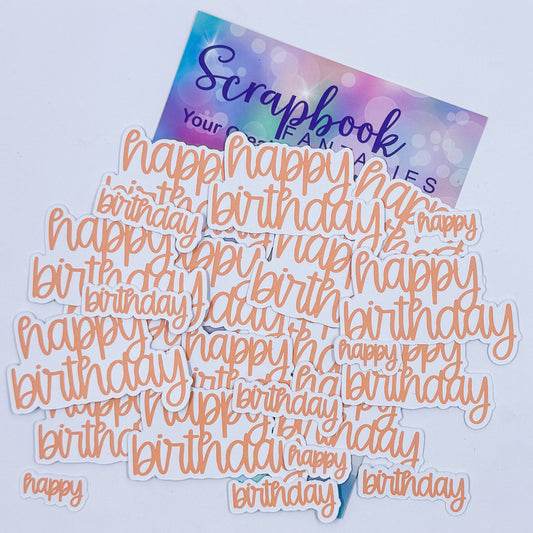 Scrapbook
FANTASIES
Your Crea
happy
happy
happy
birthday
birthday
happy
happy
happy
happy
happy
birthday
birthday
birthday
birthday
happy
birthday
happy
birthday
happy
happy
birthday
birthday
birthday
happy
birthday
birthday
happy
happy
birthday
birthday